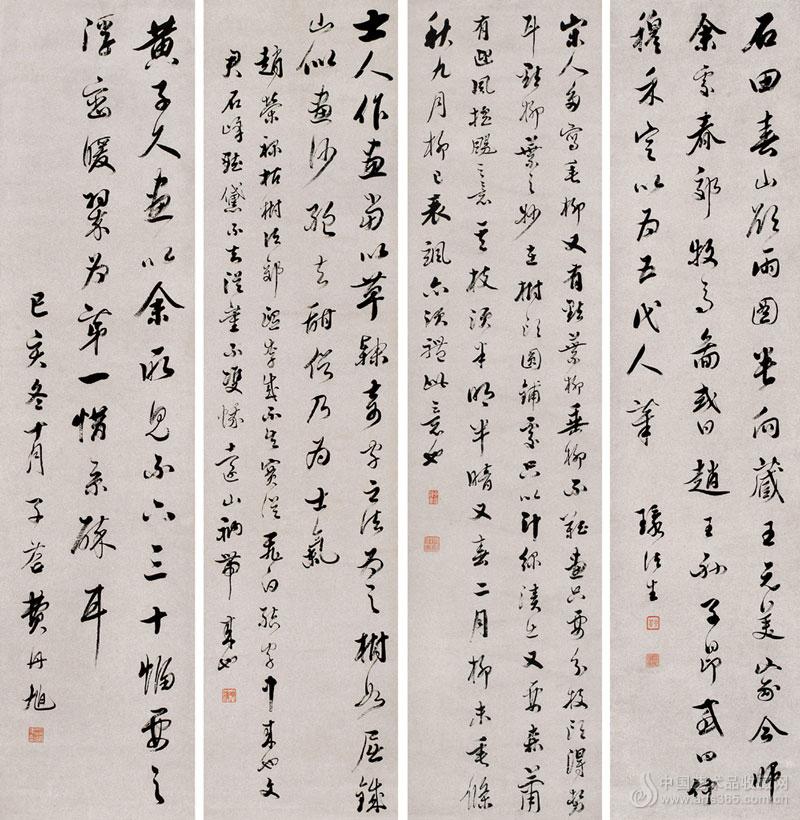 石田春山欲雨圖卷向藏王元美家今歸
余家春郊牧馬圖或曰趙王孫子昂或曰仲
穆未定以為五代人筆
宋人多寫垂柳又有點葉柳垂柳不難畫只要分枝頭得勢
耳點柳葉之妙在樹頭圓鋪處只以汁綠漬出又要森蕭
有迎風搖颺之意其枝須半明半暗又春二月柳未垂條
秋九月柳已衰颯亦須體此意也
士人作畫當以草隸奇字之法為之樹如屈鐵
山似畫沙絕去甜俗乃為士氣
趙榮祿枯樹法郭熙李成不知實從飛白結字中來也文
君石峰點黛不知從董雙成遠山衲帶來也
黃子久畫以余所見不下三十幅要之
浮巒暖翠為第一惜景碎耳
己亥冬十月子苕費丹旭